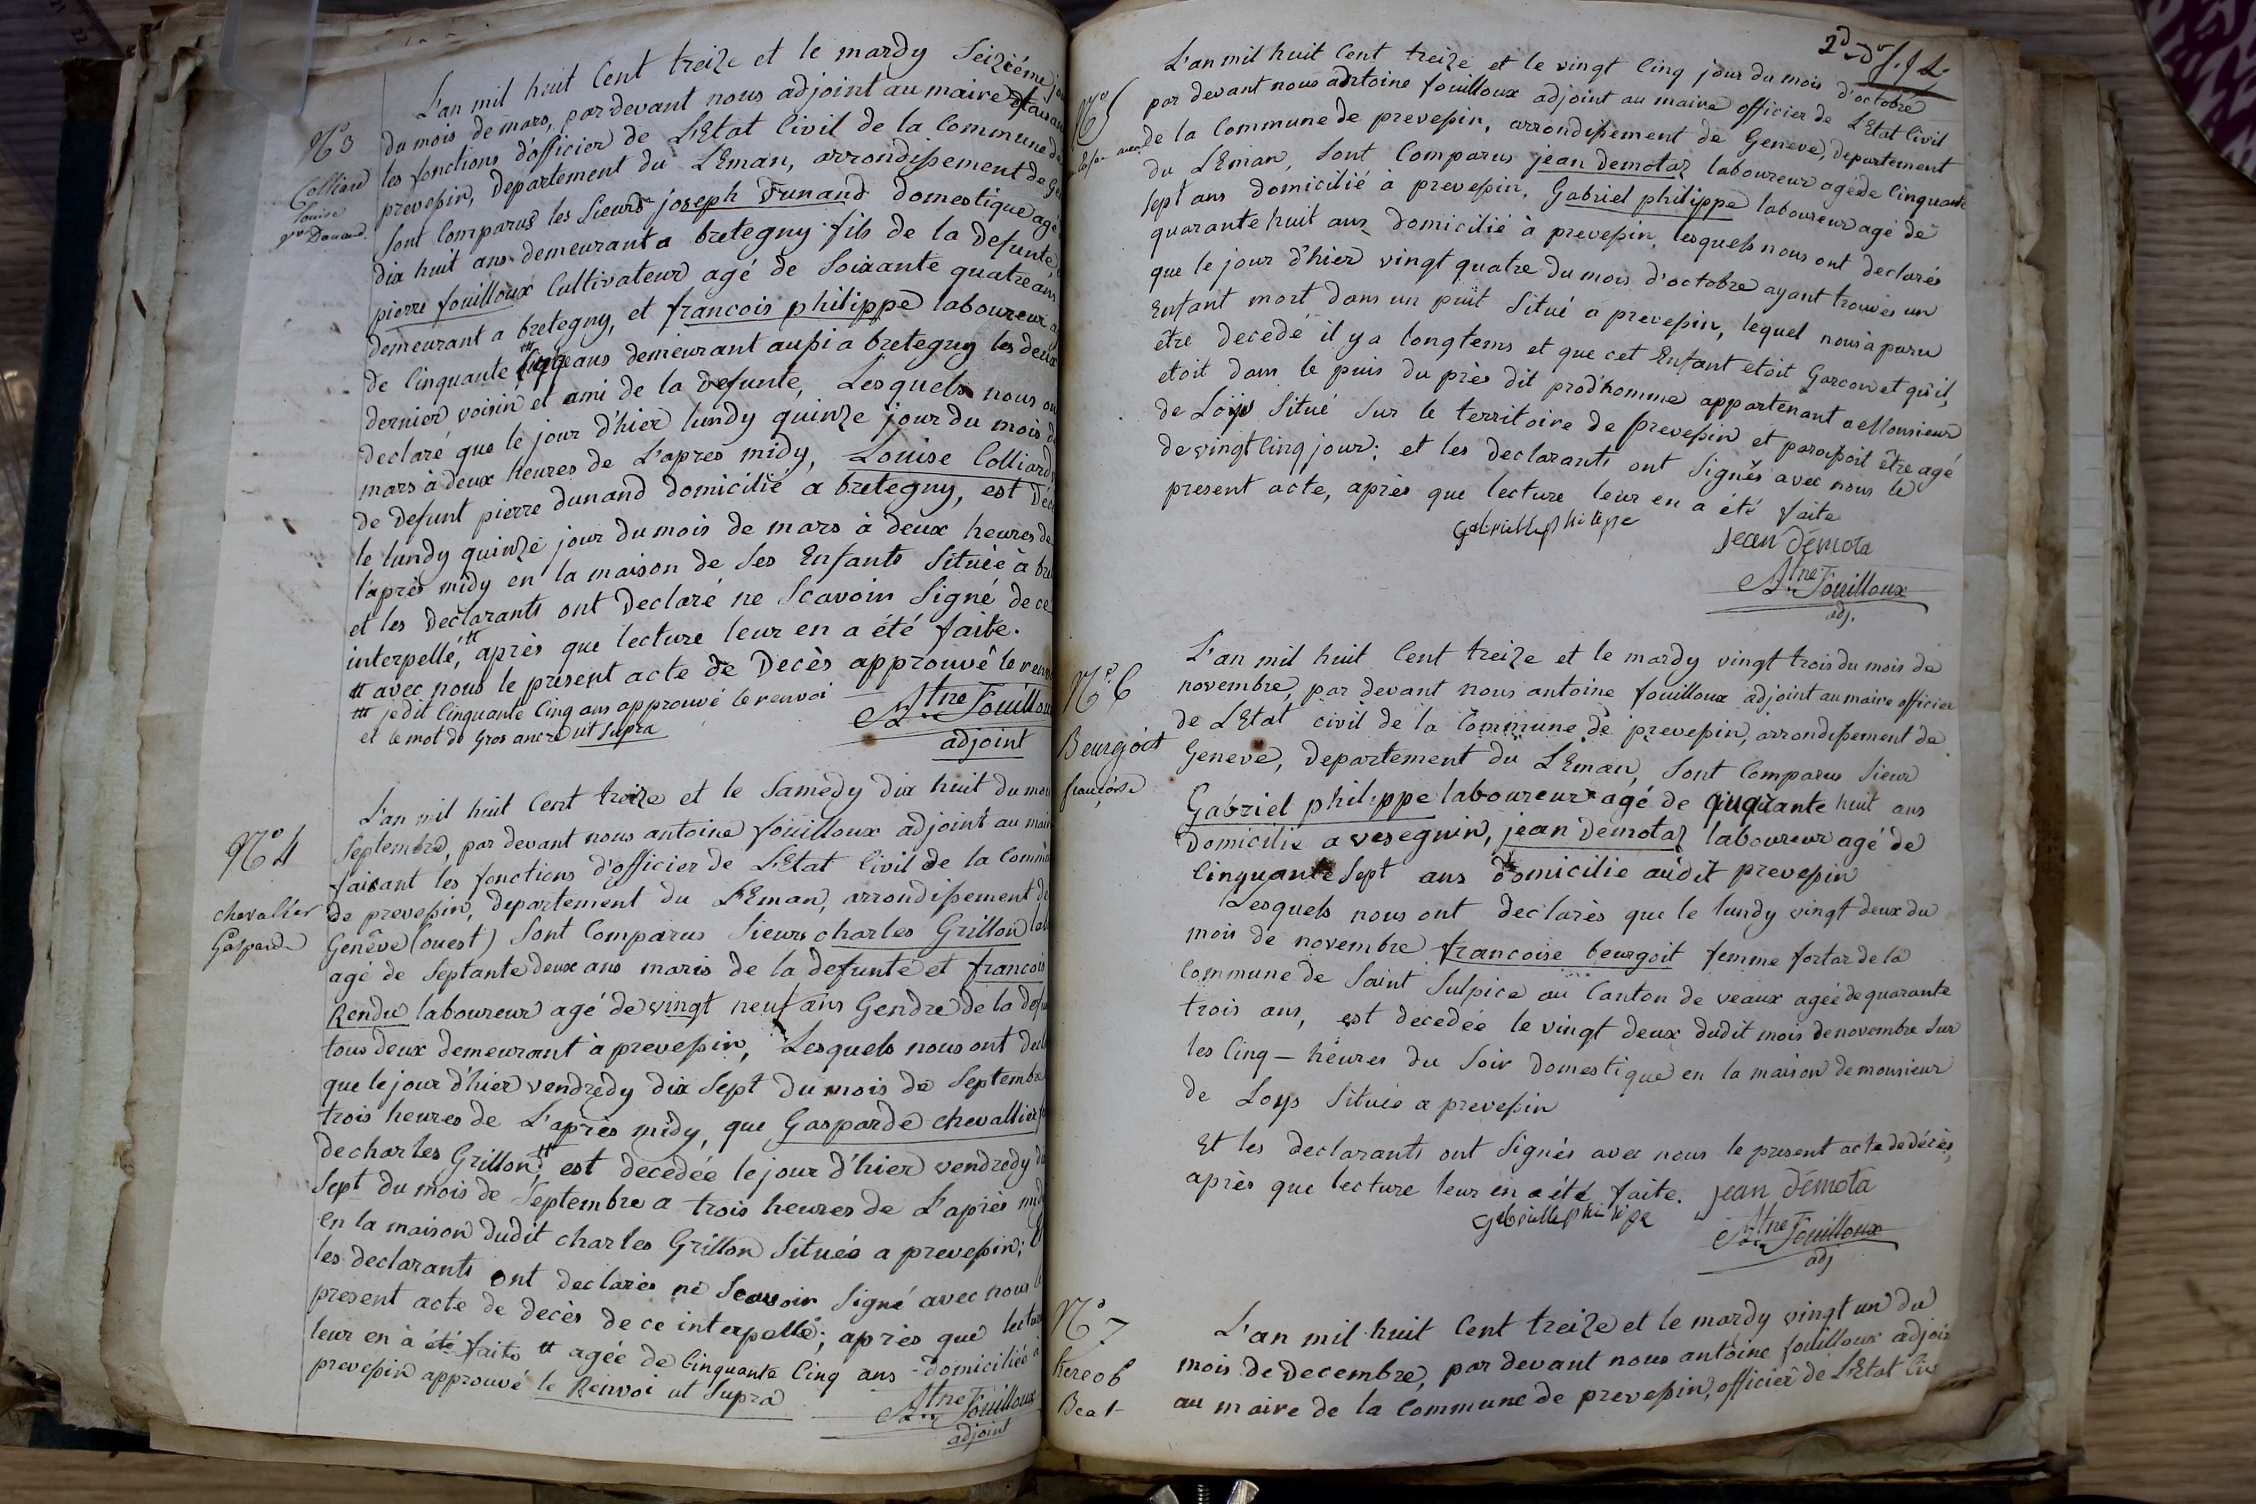 L'an mil huit Cent treize et le mardy Seiziéme
N° 3
du mois de mars, par devant nous adjoint au maire faisant
les fonctions d'officier de L'Etat Civil de la Commune de
Colliard
Louise
prevessin, departement du L'Eman, arrondissement de
Sont Comparus les Sieurs joseph Dunand domestique agé
ve Dunand
dix huit ans demeurant a bretegny fils de la defunte,
pierre fouilloux Cultivateur agé de Soixante quatre ans
demeurant a bretegny, et francois philippe laboureur
de Cinquante ans demeurant aussi a bretegny les deux
dernier voisin et ami de la defunte, Lesquels nous ont
declaré que le jour d'hier lundy quinze jour du mois de
mars à deux heures de L'apres midy, Louise Colliard
de defunt pierre dunand domicilié a bretegny, est
le lundy quinze jour du mois de mars à deux heures de
l'après midy en la maison de Ses Enfants Située à
et les declarants ont declaré ne Scavoir Signé de ce
interpellé, # après que lecture leur en a été faite.
# avec nous le présent acte de Decès approuvé le renvoi
je dit Cinquante Cinq ans approuvé le renvoi
et le mot de Gros ancre ut Supra
Atne Fouilloux
adjoint
L'an mil huit Cent treize et le Samedy dix huit du mois
N° 4
Septembre, par devant nous antoine fouilloux adjoint au maire
faisant les fonctions d'officier de L'Etat Civil de la Commune
chevalier
Gasparde
de prevessin, departement du L'Eman, arrondissement de
Genêve (ouest) Sont Comparus Sieurs charles Grillon
agé de Septante deux ans maris de la defunte et francois
Rendu laboureur agé de vingt neuf ans Gendre de la
tous deux demeurant à prevessin, Lesquels nous ont
que le jour d'hier vendredy dix Sept du mois de Septembre
trois heures de L'après midy, que Gasparde chevallier
de charles Grillon # est decedée le jour d'hier vendredy dix
Sept du mois de Septembre a trois heures de L'après midy
en la maison dudit charles Grillon Située a prevessin;
les declarants ont declarés ne Scavoir Signé avec nous le
present acte de decès de ce interpellé; après que lecture
leur en à été faite # agée de Cinquante Cinq ans domiciliée à
prevessin approuvé le Renvoi ut Supra
Atne Fouilloux
adjoint
L'an mil huit Cent treize et le vingt Cinq jour du mois d'octobre
N° 5
par devant nous antoine fouilloux adjoint au maire officier de L'Etat Civil
de la Commune de prevessin, arrondissement de Geneve, departement
du L'Eman, Sont Comparus jean demotaz laboureur agé de Cinquante
Sept ans domicilié à prevessin, Gabriel philippe laboureur agé de
quarante huit ans domicilié à prevessin, lesquels nous ont declarés
que le jour d'hier vingt quatre du mois d'octobre ayant trouvés un
Enfant mort dans un puit Situé a prevessin, lequel nous à paru
être decedé il y a longtems et que cet Enfant etoit Garcon et qu'il,
etoit dans le puis du près dit prod'homme appartenant a Monsieur
de Loÿs Situé Sur le territoire de prevessin et paroissoit être agé
de vingt Cinq jour; et les declarants ont Signés avec nous le
present acte, après que lecture leur en a été faite
Gabriellephilippe
jean démota
Atne Fouilloux
adj.
L'an mil huit Cent treize et le mardy vingt trois du mois de
N° 6
novembre, par devant nous antoine fouilloux adjoint au maire officier
de L'Etat civil de la Commune de prevessin, arrondissement de
Beurgoit
françoise
Geneve, departement du L'Eman, Sont Comparus Sieur
Gabriel philippe laboureur agé de quarante huit ans
Domicilié a vesegnin, jean demotaz laboureur agé de
Cinquante Sept ans domicilie audit prevessin
Lesquels nous ont declarés que le lundy vingt deux du
mois de novembre francoise beurgoit femme fortar de la
Commune de Saint Sulpice au Canton de veaux agée de quarante
trois ans, est decedée le vingt deux dudit mois de novembre Sur
les Cinq — heures du Soir domestique en la maison de monsieur
de Loys Située a prevessin
Et les declarants ont Signés avec nous le present acte de décès,
après que lecture leur en a été faite.
jean démota
Gabriellephilippe
Atne Fouilloux
adj
N° 7
L'an mil huit Cent treize et le mardy vingt un du
mois de decembre, par devant nous antoine fouilloux adjoint
Beat
au maire de la Commune de prevessin, officier de L'Etat Civ